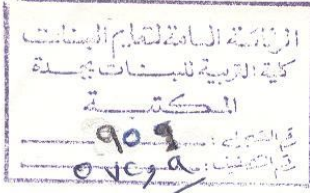 الرئاسة العامة لتعليم البنات
كلية التربية للبنات بجدة
المكتبة
رقم التسجيل: ٩٠٩
رقم التصنيف: